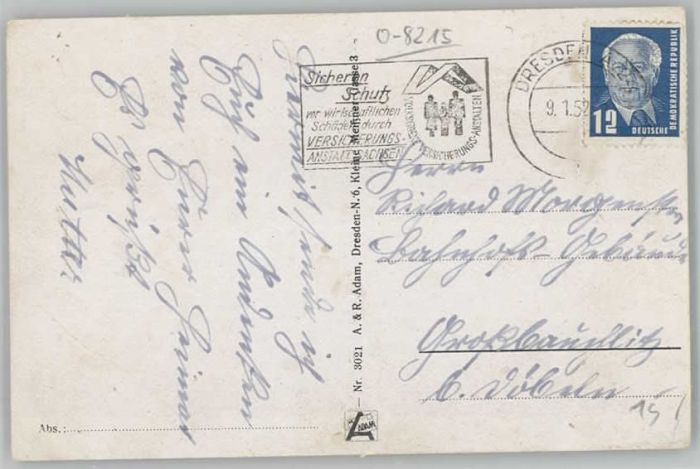 O-8215
Sicheren
Schutz
vor wirtschaftlichen
Schäden durch
VERSICHERUNGS-
ANSTALT SACHSEN
VERSICHERUNGS-ANSTALTEN
DRESDEN
9.1.52
12
DEUTSCHE
DEMOKRATISCHE REPUBLIK
Hiermit sende ich
Euch ein Andenken
von Eurer Heimat
Es grüßt
Herrn
Richard Morgenstern
Bahnhofs-Gebäude
Großbauchlitz
b. Döbeln
15
Nr. 3021 A. & R. Adam, Dresden-N. 6, Kleine Meißner Gasse 3
ADAM
Abs.: